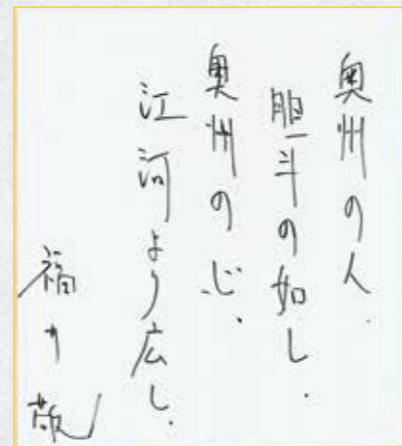 奥州の人.
胆斗の如し.
奥州の心.
江河より広し.
福井敬